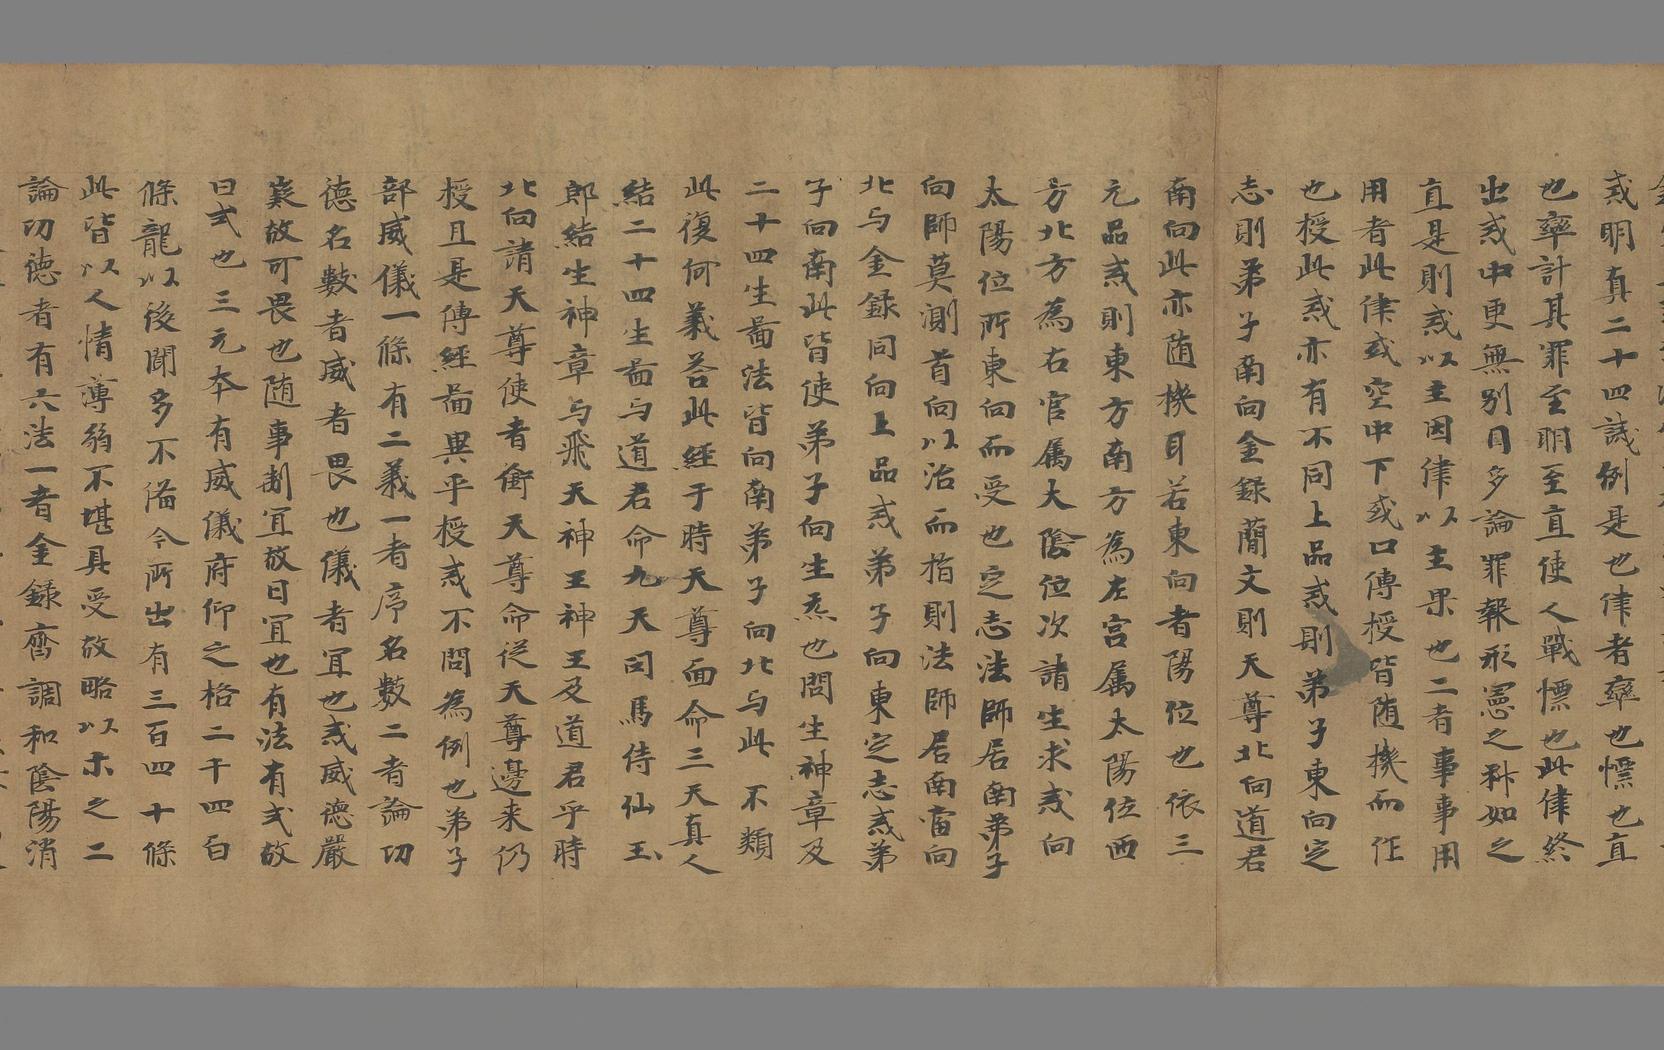 戒明真二十四誡例是也律者率也慄也直
也率計其罪至明至直使人戰慄也此律終
出戒中更無別目多論罪報形憲之科如之
直是則戒以主因律以主果也二者事事用
用者此律或空中下或口傳授皆随機而任
也授此戒亦有不同上品戒則弟子東向定
志則弟子南向金録簡文則天尊北向道君
南向此亦随機耳若東向者陽位也依三
元品戒則東方南方為左宮属太陽位西
方北方為右官属大陰位次請生求戒向
太陽位所東向而受也定志法師居南弟子
向師莫測首向以治而指則法師居南面向
北与金録同向上品戒弟子向東定志戒弟
子向南此皆使弟子向生炁也問生神章及
二十四生啚法皆向南弟子向北与此不類
此復何義荅此經于時天尊面命三天真人
結二十四生啚与道君命九天司馬侍仙玉
郎結生神章与飛天神王神王及道君乎時
北向請天尊使者衝天尊命従天尊邊来仍
授且是傳經啚異乎授戒不問為例也弟子
部威儀一條有二義一者序名數二者論功
德名數者威者畏也儀者冝也戒威德嚴
嶷故可畏也随事制冝故曰冝也有法有式故
曰式也三元本有威儀府仰之格二千四百
條龍以後聞多不俻今所出有三百四十條
此皆以人情薄弱不堪具受故略以示之二
論功德者有六法一者金録齋調和陰陽消